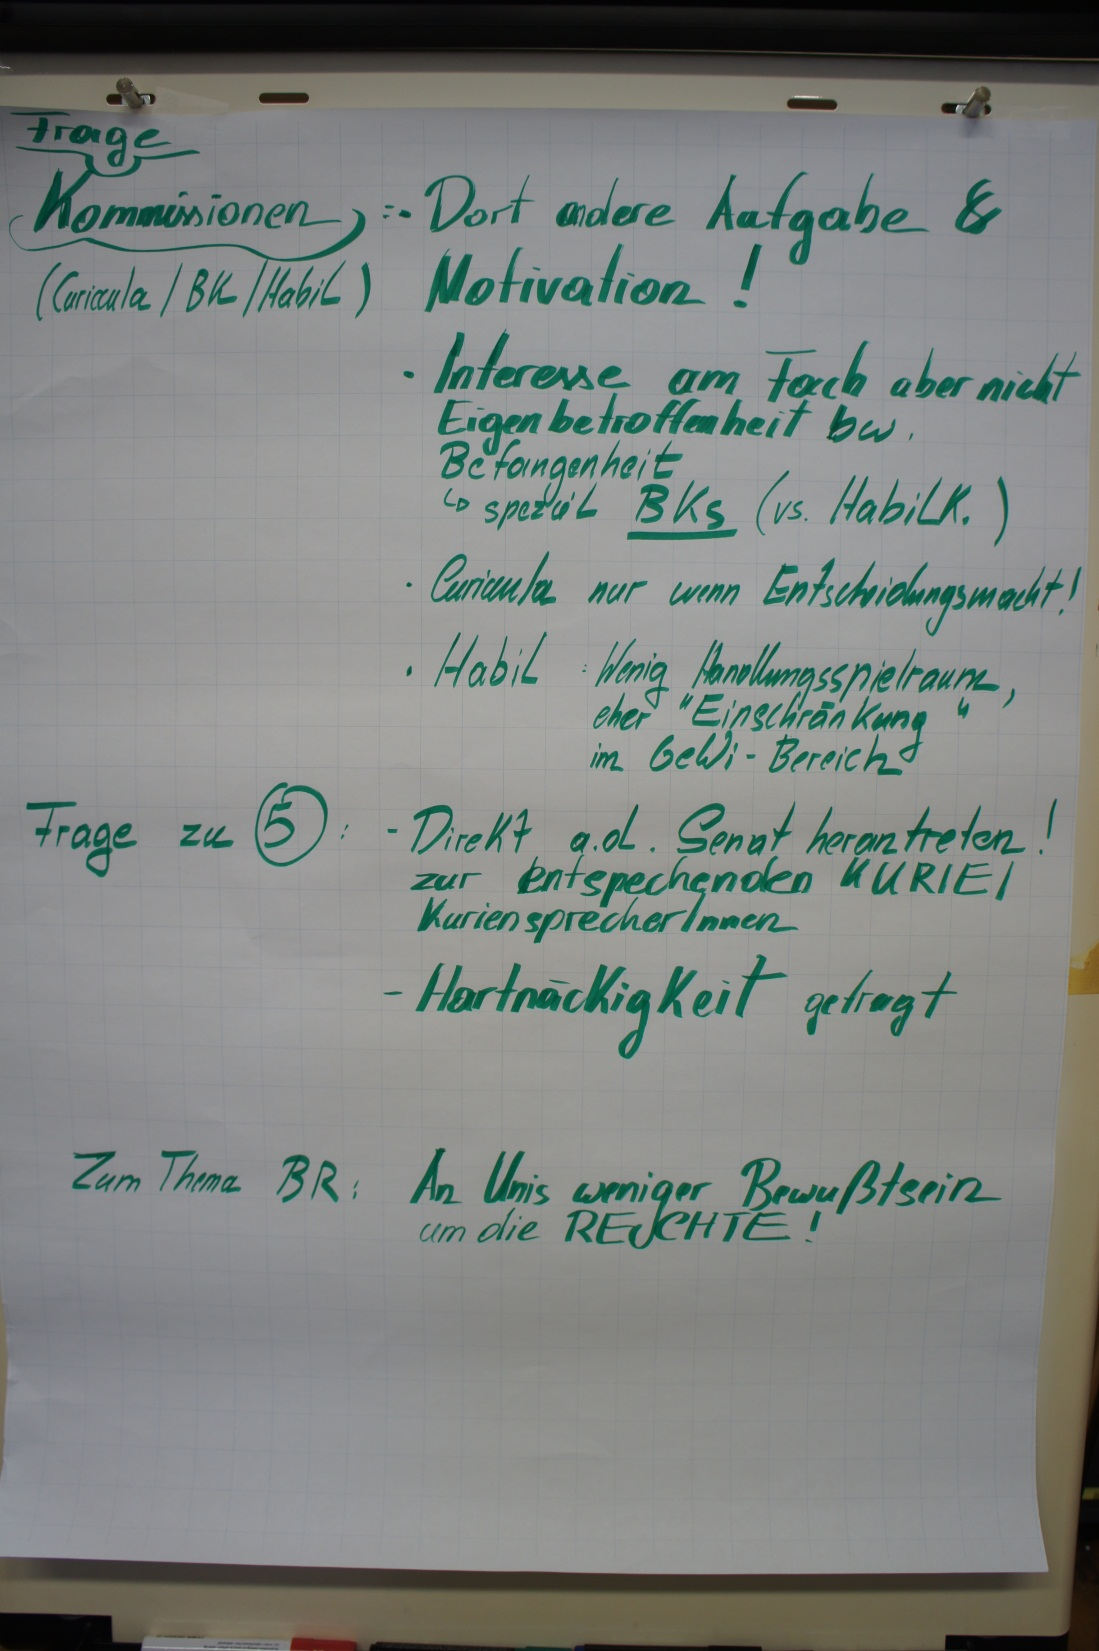 Frage
Kommissionen :- Dort andere Aufgabe &
(Curicula / BK / Habil) Motivation !
· Interesse am Fach aber nicht
Eigenbetroffenheit bw.
Befangenheit
↳ speziel BKs (vs. HabilK.)
· Curicula nur wenn Entscheidungsmacht!
· Habil : Wenig Handlungsspielraum,
eher "Einschränkung"
im GeWi - Bereich
Frage zu 5 : - Direkt a.d. Senat herantreten!
zur entspechenden KURIE/
KuriensprecherInnen
- Hartnäckigkeit gefragt
Zum Thema BR: An Unis weniger Bewußtsein
um die RECHTE!